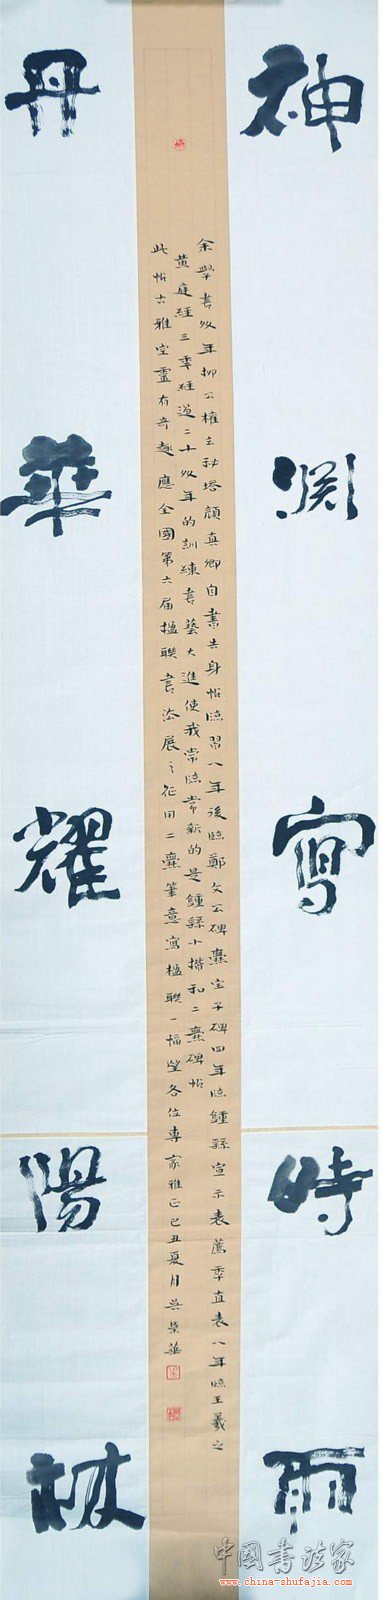 神渊寫時雨
余學書多年柳公權玄秘塔顏真卿自書告身帖臨習八年後臨鄭文公碑爨宝子碑四年臨鍾繇宣示表薦季直表八年臨王羲之
黄庭經三季經過二十多年的訓練書藝大進使我常臨常新的是鍾繇小楷和二爨碑帖
此帖古雅空靈有奇趣應全國第六届楹聯書法展之征用二爨筆意寫楹聯一幅望各位專家雅正己丑夏月吴榮華
丹華耀陽林
中國書法家
www.china-shufajia.com